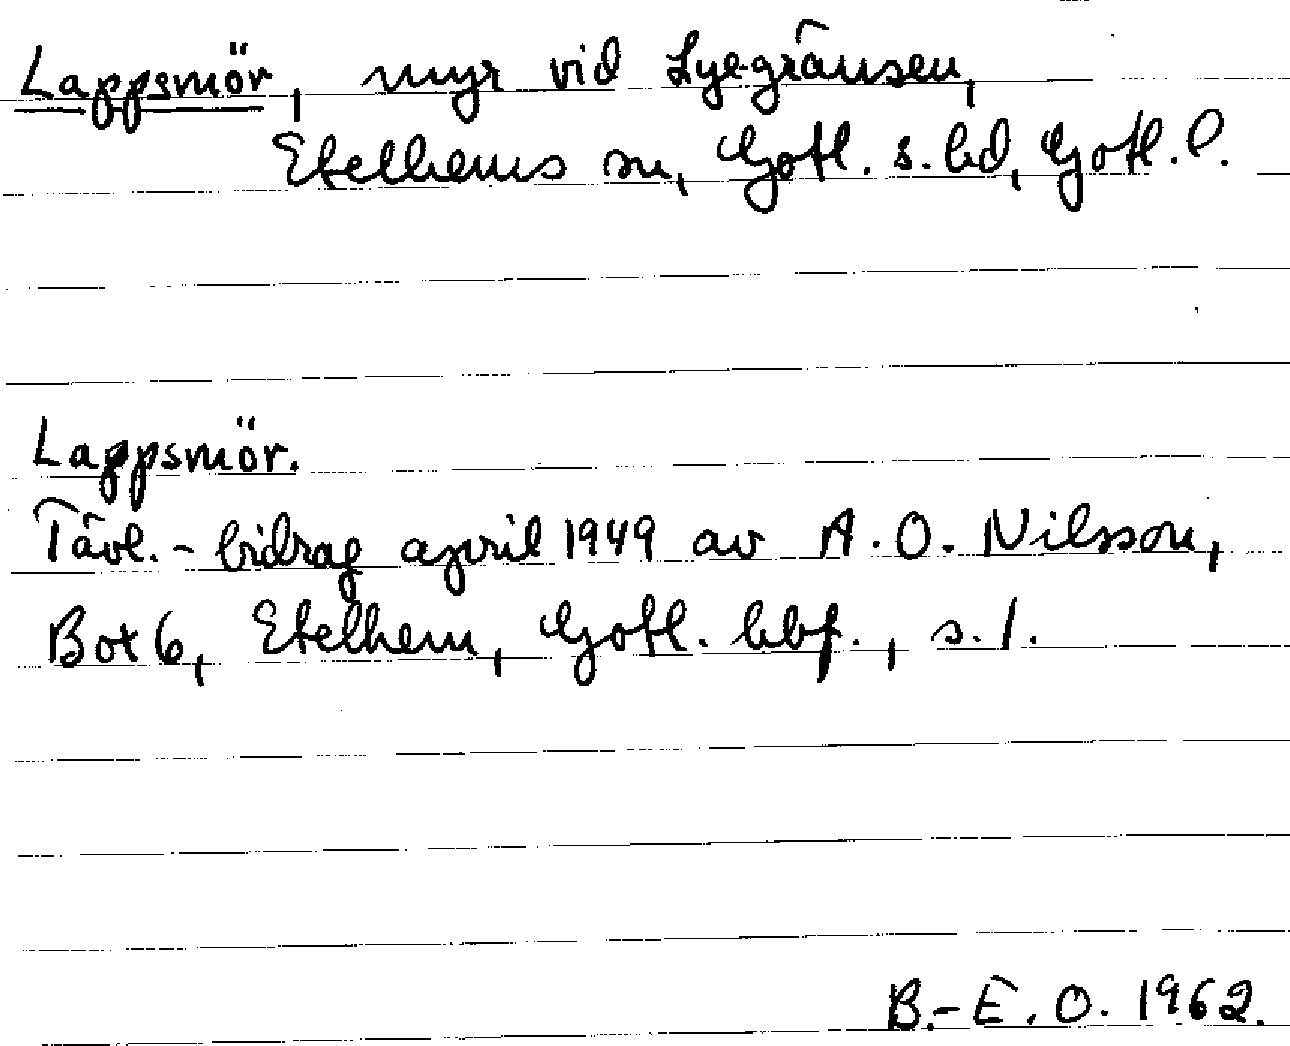 Lappsmör, myr vid Lyegränsen,
Etelhems sn, Gotl. s. hd, Gotl. l.
Lappsmör.
Tävl.-bidrag april 1949 av A. O. Nilsson,
Box 6, Etelhem, Gotl. hbf., s. 1.
B.-E. O. 1962.